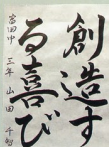 創造す
る喜び
富田中 三年 山田 千智